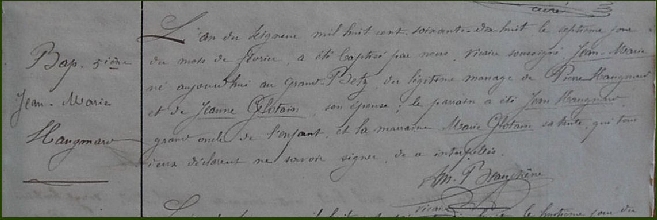 Bap. 5ième
Jean-Marie
Haugmard
L'an du Seigneur mil huit cent soixante-dix huit le septième jour
du mois de février a été baptisé par nous, vicaire soussigné Jean-Marie
né aujourd'hui au grand Betz, du légitime mariage de Pierre Haugmard
et de Jeanne Gletain son épouse; le parrain a été Jean Haugmard
grand oncle de l'enfant, et la marraine Marie Gletain sa tante, qui tous
deux déclarent ne savoir signer, de ce interpellés
m.
Vicaire